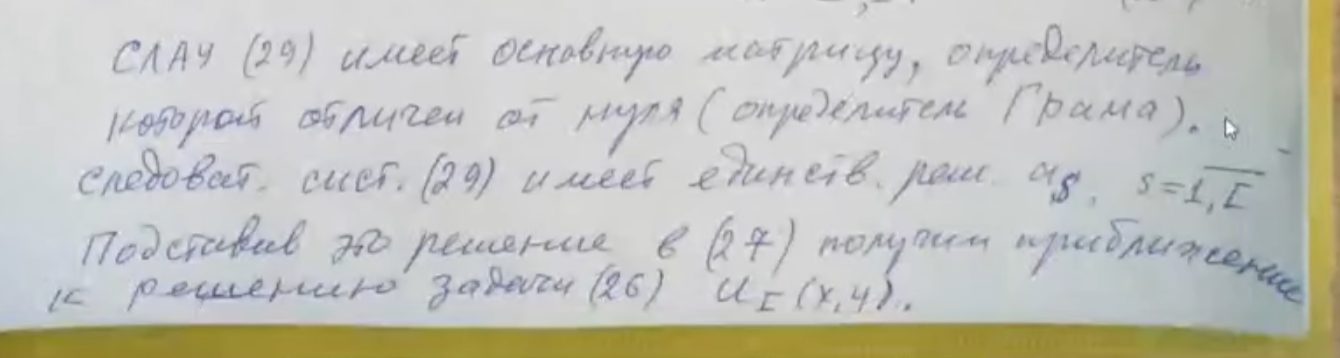 СЛАУ (29) имеет основную матрицу, определитель
которой отличен от нуля (определитель Грама).
следоват. сист. (29) имеет единств. реш. a_s, s=1,I
Подставив это решение в (27) получим приближение
к решению задачи (26) u_I(x,y).